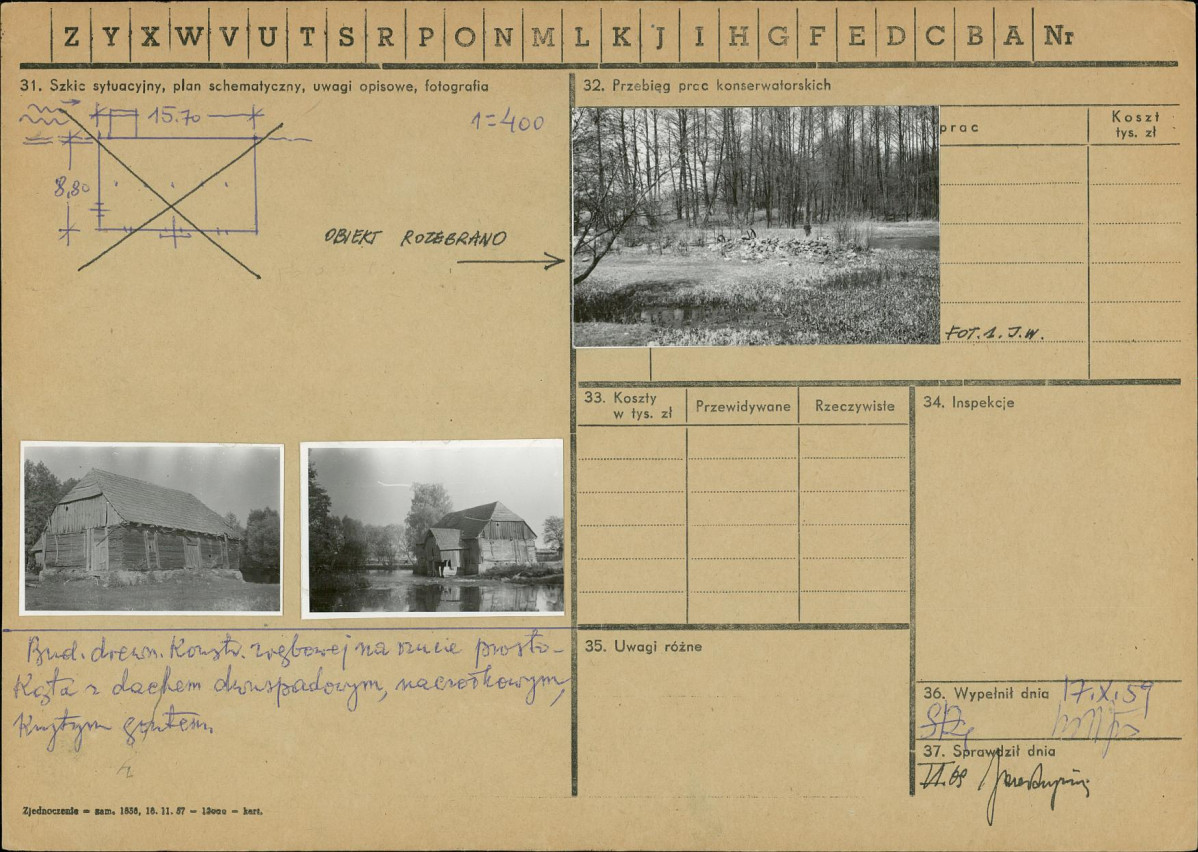 Z Y X W V U T S R P O N M L K J I H G F E D C B A Nr
31. Szkic sytuacyjny, plan schematyczny, uwagi opisowe, fotografia
15.70
1=400
8,80
OBIEKT ROZEBRANO
Bud. drewn. Konstr. zrębowej na rzucie prosto-
kąta z dachem dwuspadowym, naczółkowym,
krytym gontem.
Zjednoczenie — zam. 1838, 16. 11. 57 — 12000 — kart.
32. Przebieg prac konserwatorskich
prac
Koszt
tys. zł
FOT. 1. J.W.
33. Koszty
w tys. zł
Przewidywane
Rzeczywiste
34. Inspekcje
35. Uwagi różne
36. Wypełnił dnia 17.X.59
37. Sprawdził dnia